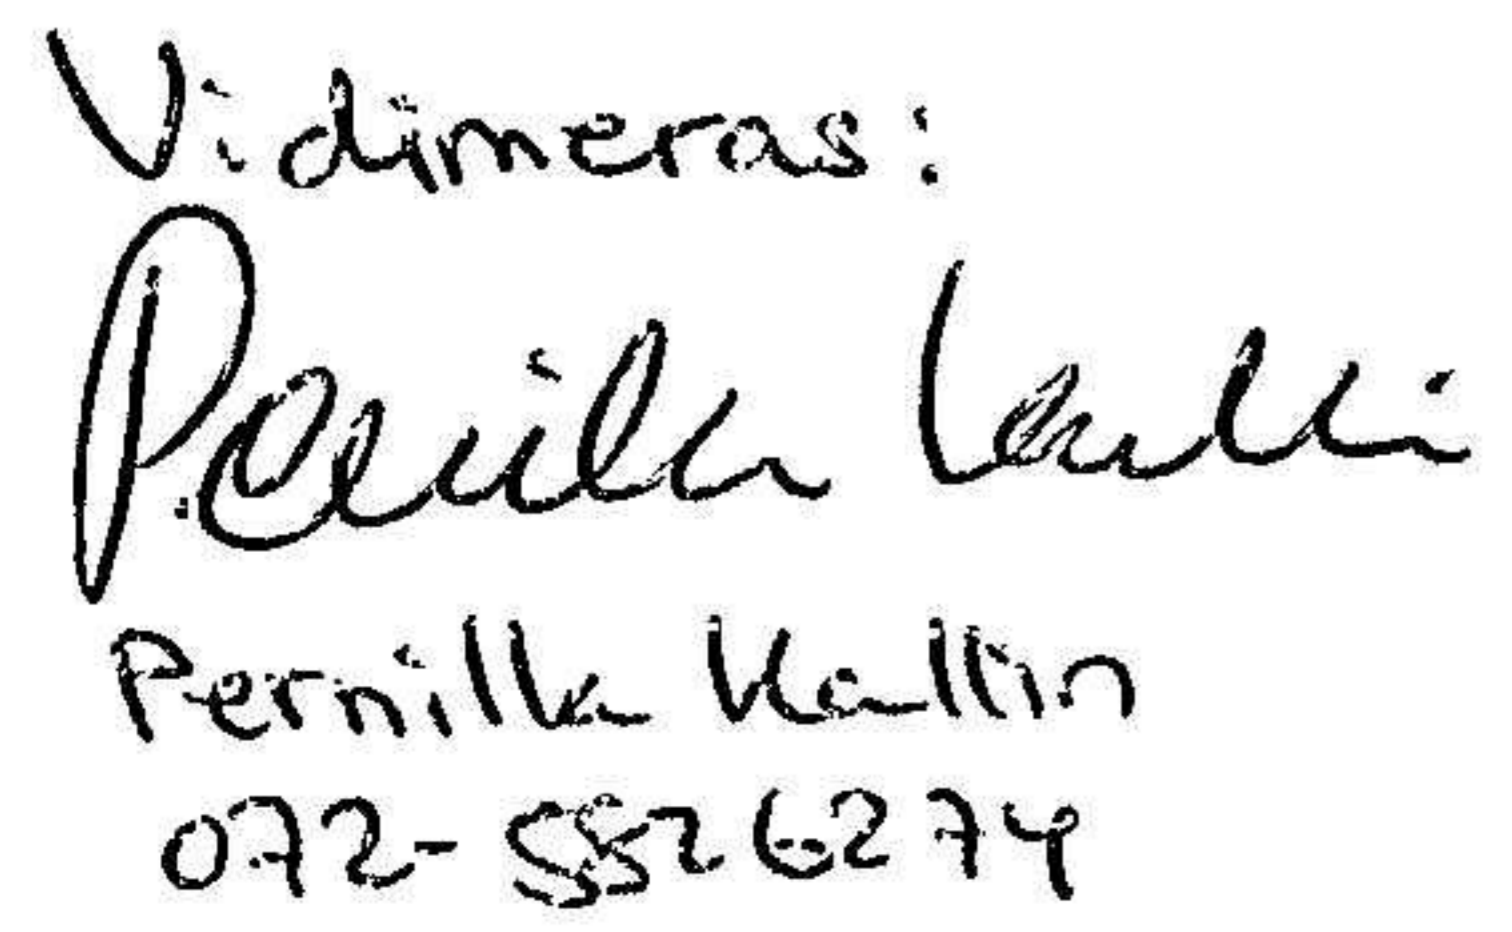 Vidimeras:
Pernilla Kallin
Pernilla Kallin
072-5526274